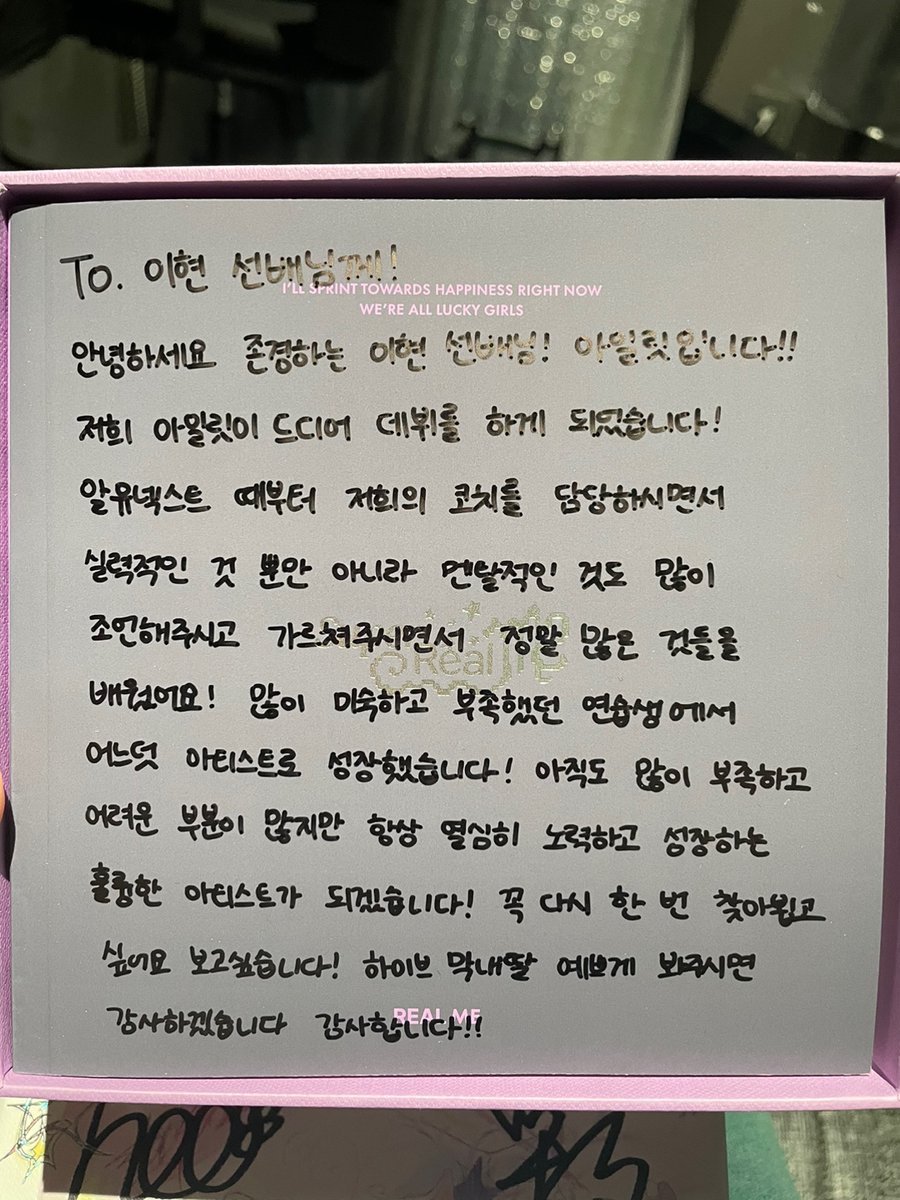 To. 이현 선배님께!
I'LL SPRINT TOWARDS HAPPINESS RIGHT NOW
WE'RE ALL LUCKY GIRLS
안녕하세요 존경하는 이현 선배님! 아일릿입니다!!
저희 아일릿이 드디어 데뷔를 하게 되었습니다!
알유넥스트 때부터 저희의 코치를 담당하시면서
실력적인 것 뿐만 아니라 멘탈적인 것도 많이
조언해주시고 가르쳐주시면서 정말 많은 것들을
Real
배웠어요! 많이 미숙하고 부족했던 연습생에서
어느덧 아티스트로 성장했습니다! 아직도 많이 부족하고
어려운 부분이 많지만 항상 열심히 노력하고 성장하는
훌륭한 아티스트가 되겠습니다! 꼭 다시 한 번 찾아뵙고
싶어요 보고싶습니다! 하이브 막내딸 예쁘게 봐주시면
REAL ME
감사하겠습니다 감사합니다!!